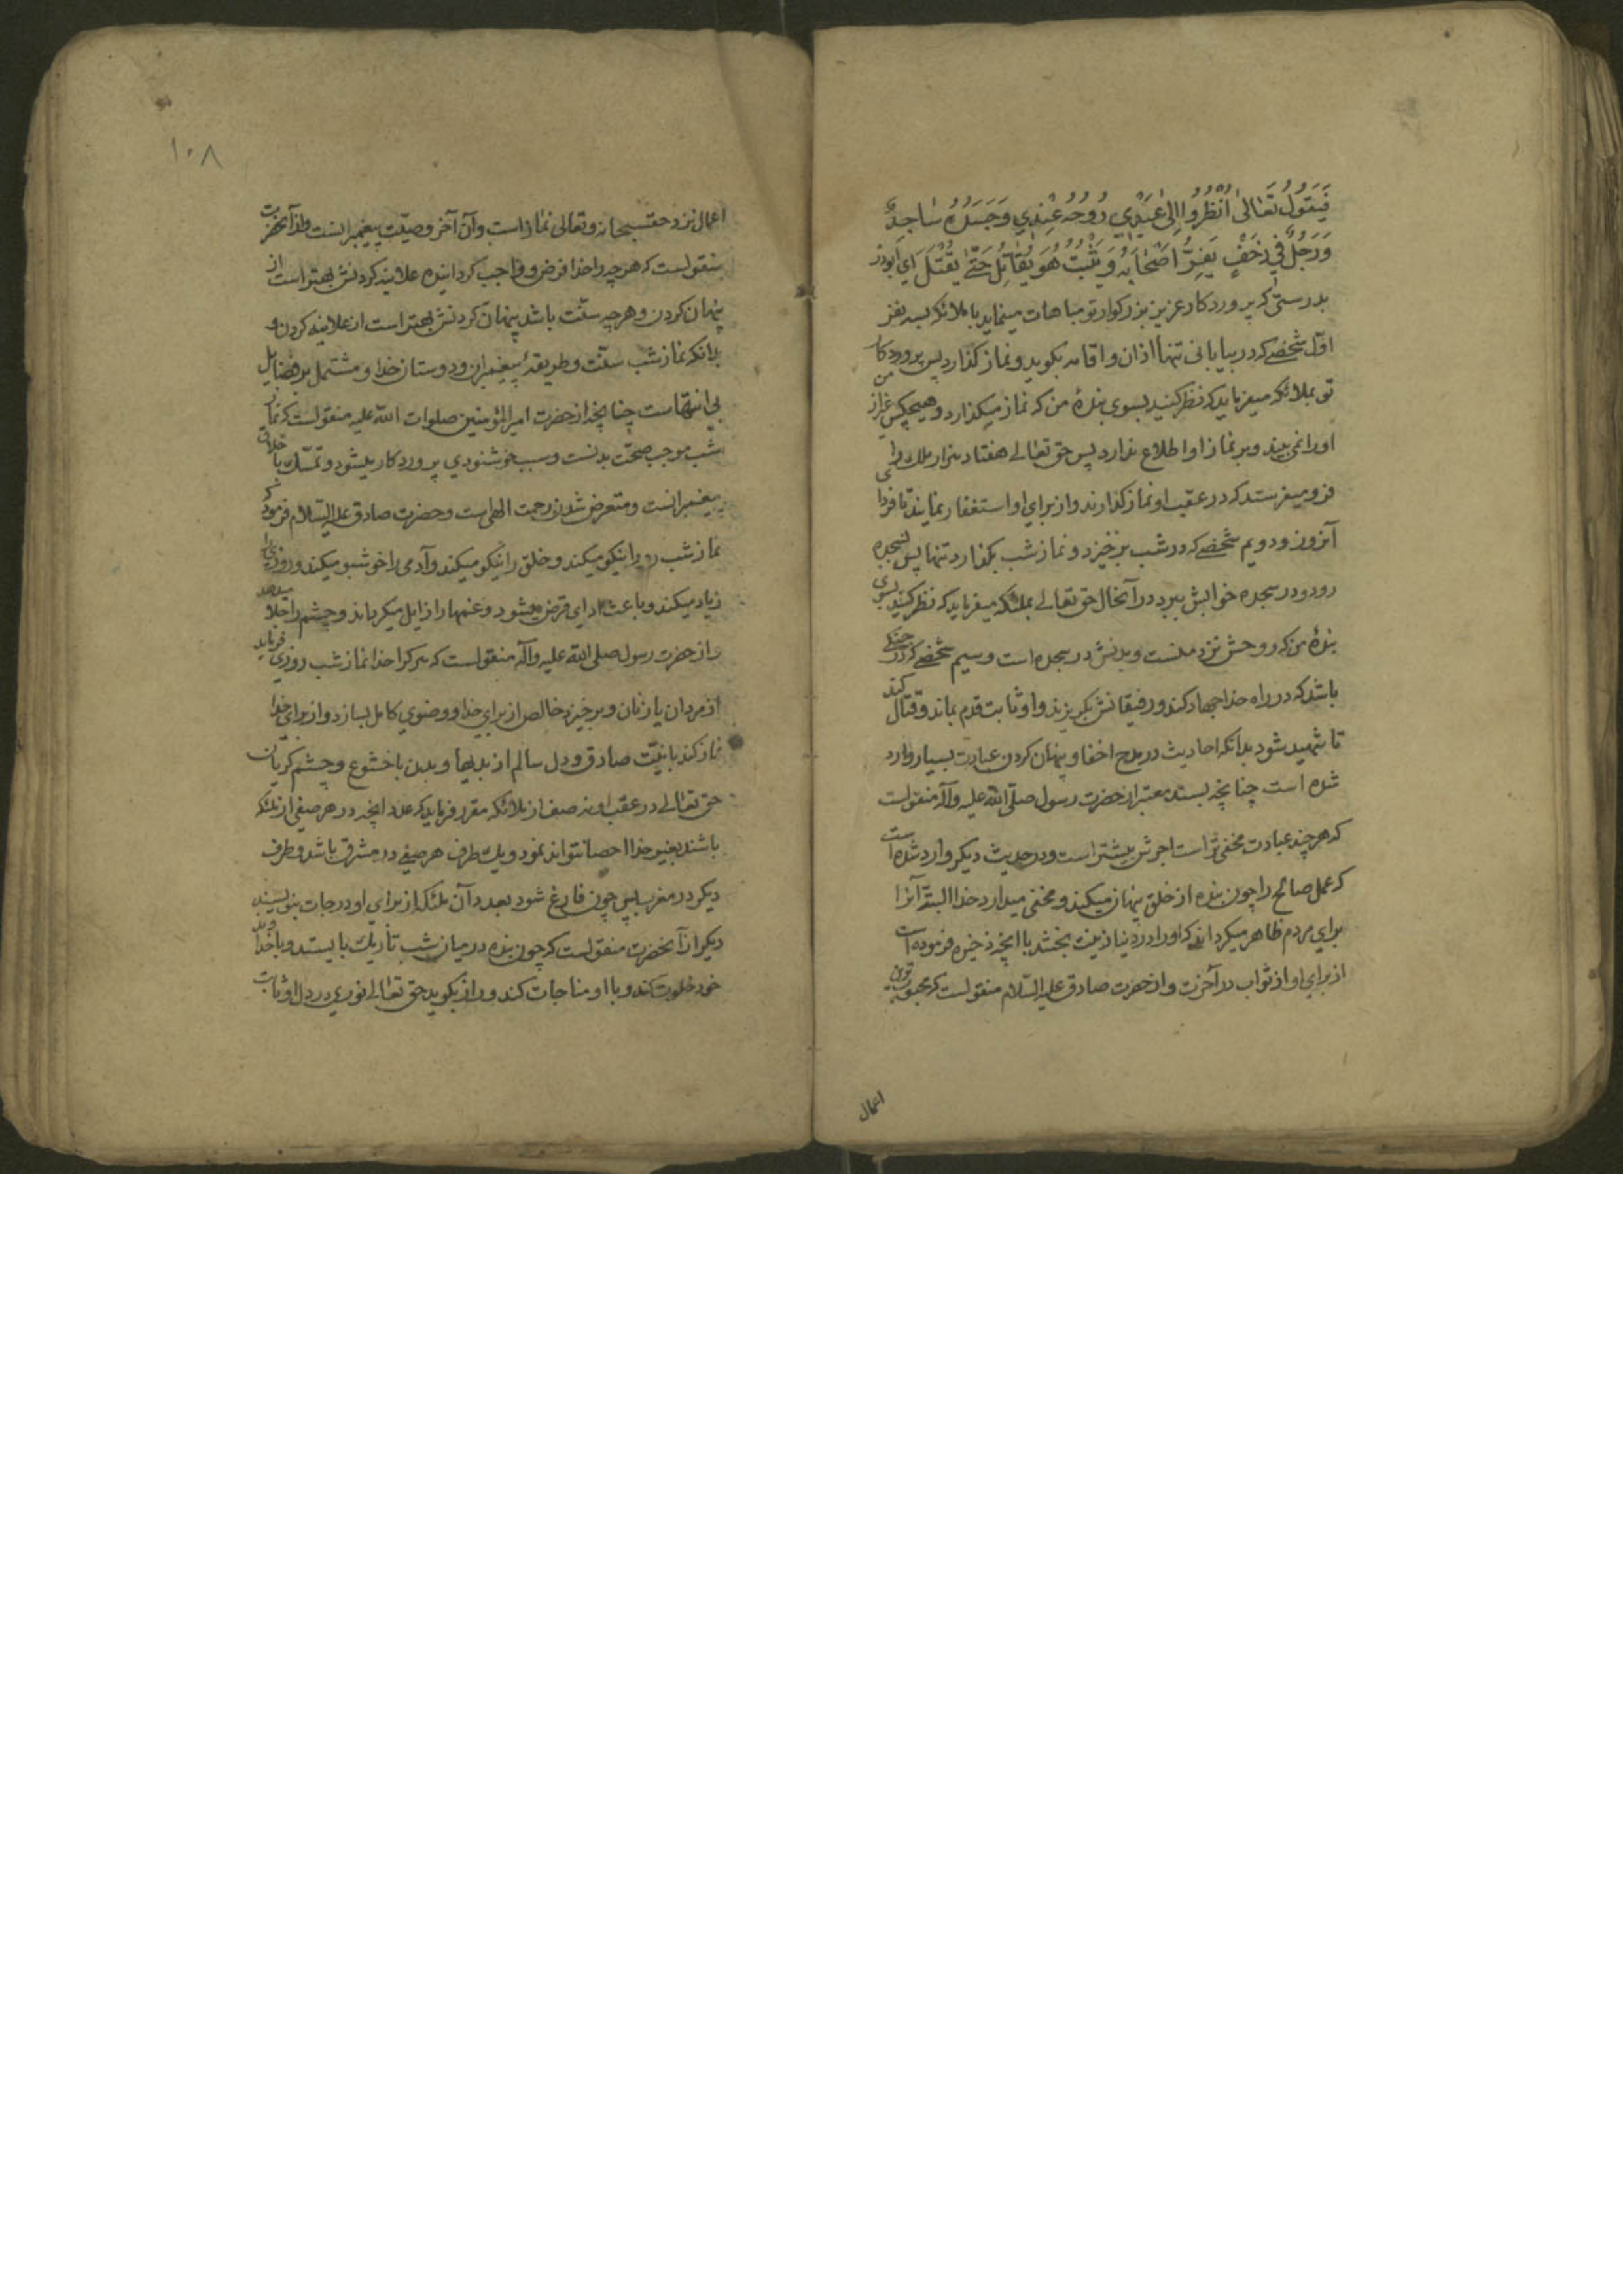 فَيَقُولُ تَعَالىٰ اُنْظُرُوا اِلىٰ عَبْدِي رُوحُهُ عِنْدِي وَجَسَدُهُ سٰاجِدٌ
وَرَجُلٌ فِي زَحْفٍ يَفِرُّ اَصْحٰابُهُ وَيَثْبُتُ هُوَ يُقٰاتِلُ حَتّٰى يُقْتَلَ اي ابوذر
بدرستی که پروردکار عزیز بزرکوار تو مباهات مینماید با ملائکه بسه نفر
اوّل شخصی که در بیابانی تنها اذان و اقامه بکوید و نماز کذارد پس پروردکار
تو بملائکه میفرماید که نظر کنید بسوی بندهٔ من که نماز میکذارد و هیچکس غیر از من
او را نمی بیند و بر نماز او اطلاع ندارد پس حق تعالی هفتاد هزار ملک را
فرو میفرستد که در عقب او نماز کذارند و از برای او استغفار نمایند تا فردای
آنروز و دویم شخصی که در شب برخیزد و نماز شب بکذارد تنها پس بسجده
رود و در سجده خوابش ببرد در آنحال حق تعالی بملئکه میفرماید که نظر کنید بسوی
بندهٔ من که روحش نزد منست و بدنش در سجده است و سیم شخصی که در جنکی
باشد که در راه خدا جهاد کند و رفیقانش بکریزند و او ثابت قدم بماند و قتال کند
تا شهید شود بدانکه احادیث در مدح اخفا و پنهان کردن عبادت بسیار وارد
شده است چنانچه بسند معتبر از حضرت رسول صلّی الله علیه و آله منقولست
که هر چند عبادت مخفی تر است اجرش بیشتر است و در حدیث دیکر وارد شده است
که عمل صالح را چون بنده از خلق پنهان میکند و مخفی میدارد خدا البتّه آنرا
برای مردم ظاهر میکرداند که او را در دنیا زینت بخشد با انچه ذخیره فرموده است
از برای او از ثواب در آخرت و از حضرت صادق علیه السّلام منقولست که محبوبترین
اعمال
۱۰۸
اعمال نزد حقسبحانه و تعالی نماز است و آن آخر وصیّت پیغمبرانست و از آنحضرت
منقولست که هر چه را خدا فرض و واجب کردانیده علانیه کردنش بهتر است از
پنهان کردن و هر چه سنّت باشد پنهان کردنش بهتر است از علانیه کردن و
بدانکه نماز شب سنّت و طریقهٔ پیغمبران و دوستان خدا و مشتمل بر فضایل
بی انتهاست چنانچه از حضرت امیر المؤمنین صلوات الله علیه منقولست که نماز
شب موجب صحّت بدنست و سبب خوشنودي پروردکار میشود و تمسّک باخلاق
پیغمبرانست و متعرض شدن رحمت الهی است و حضرت صادق علیه السّلام فرمود که
نماز شب رو را نیکو میکند و خلق را نیکو میکند و آدمی را خوشبو میکند و روزی را
زیاد میکند و باعث ادای قرض میشود و غمها را زایل میکرداند و چشم را جلا میدهد
و از حضرت رسول صلی الله علیه و آله منقولست که هر کرا خدا نماز شب روزی فرماید
از مردان یا زنان و برخیزد خالص از برای خدا و وضوي کامل بسازد و از برای خدا
نماز کند با نیّت صادق و دل سالم از بدیها و بدن با خشوع و چشم کریان
حق تعالی در عقب او نه صف از ملائکه مقرر فرماید که عدد انچه در هر صفی از ملئکه
باشند بغیر خدا احصا نتواند نمود و یک طرف هر صفی در مشرق باشد و طرف
دیکر در مغرب پس چون فارغ شود بعدد آن ملئکه از برای او درجات بنویسند
دیکر از آنحضرت منقولست که چون بنده در میان شب تاریک بایستد و با خداوند
خود خلوت کند و با او مناجات کند و راز بکوید حق تعالی نوری در دل او ثابت